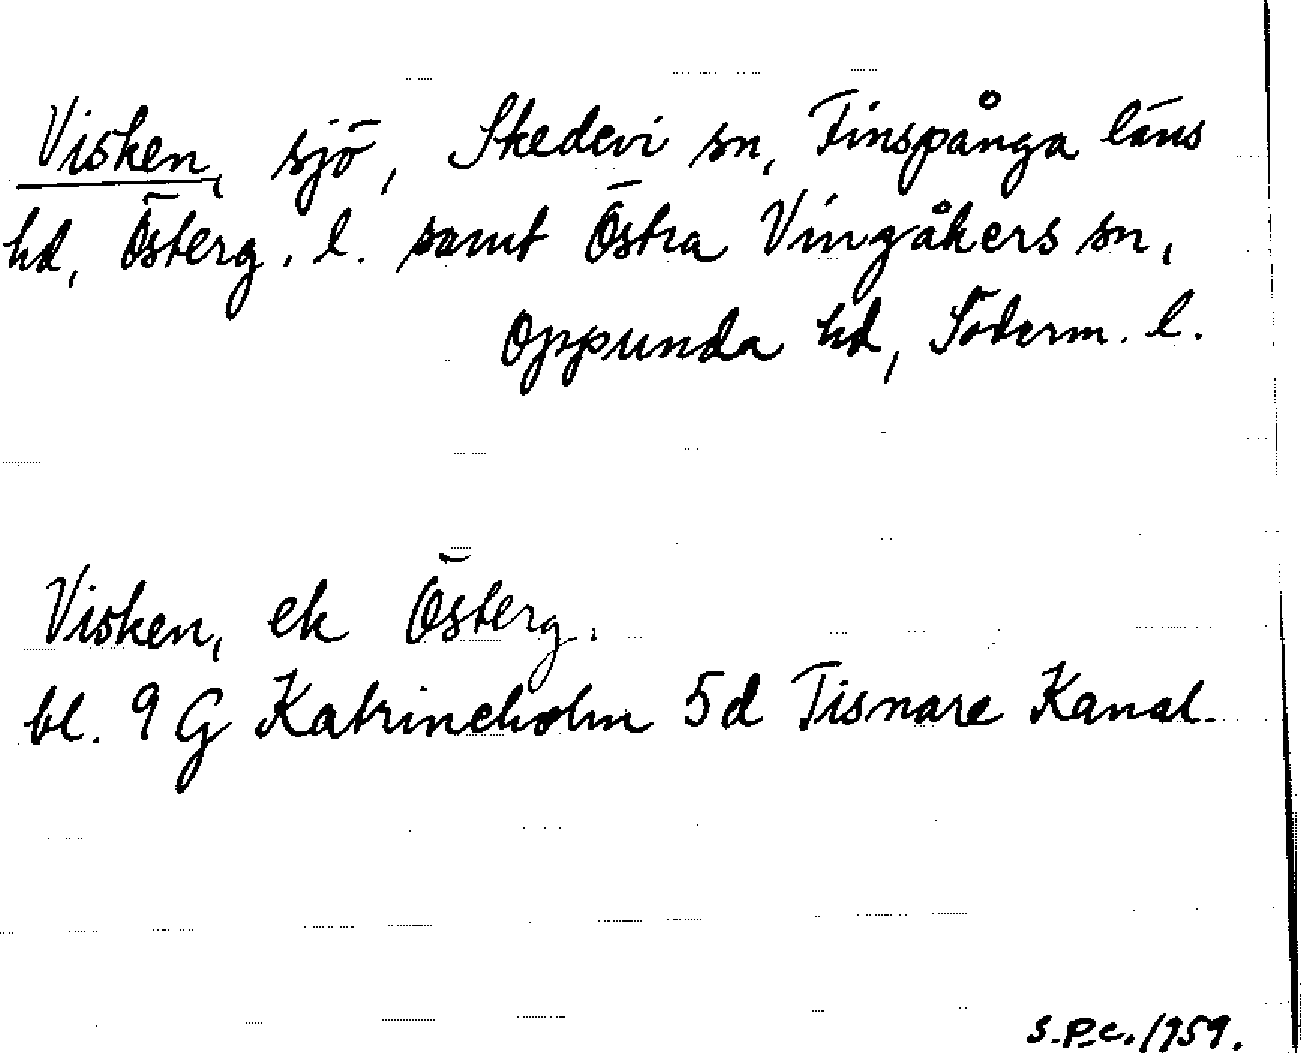 Visken, sjö, Skedevi sn, Finspånga läns
hd, Österg. l. samt Östra Vingåkers sn,
Oppunda hd, Söderm. l.
Visken, ek Österg.
bl. 9 G Katrineholm 5d Tisnare Kanal.
S.P.c. 1959.